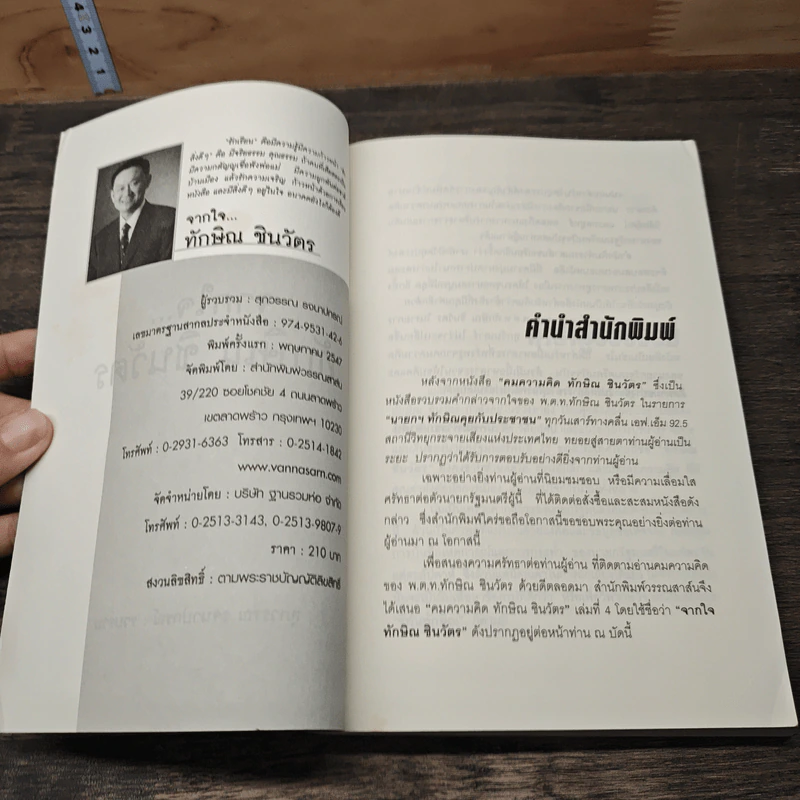 4
3
2
1
"รักเรียน" คือมีความรู้มีความก้าวหน้า
สิ่งดีๆ คือ มีจริยธรรม คุณธรรม
มีความกตัญญูเชื่อฟังพ่อแม่ มีความผูกพันต่อ
บ้านเมือง แล้วรักความเจริญ ก้าวหน้าด้วยการ
หนังสือ และมีสิ่งดีๆ อยู่ในใจ
จากใจ...
ทักษิณ ชินวัตร
ผู้รวบรวม : สุภวรรณ
เลขมาตรฐานสากลประจำหนังสือ : 974-9531-42-6
พิมพ์ครั้งแรก : พฤษภาคม 2547
จัดพิมพ์โดย : สำนักพิมพ์วรรณสาส์น
39/220 ซอยโชคชัย 4 ถนนลาดพร้าว
เขตลาดพร้าว กรุงเทพฯ 10230
โทรศัพท์ : 0-2931-6363 โทรสาร : 0-2514-1842
www.vannasam.com
จัดจำหน่ายโดย : บริษัท ฐานรวมห่อ จำกัด
โทรศัพท์ : 0-2513-3143, 0-2513-9807-9
ราคา : 210 บาท
สงวนลิขสิทธิ์ : ตามพระราชบัญญัติลิขสิทธิ์
คำนำสำนักพิมพ์
หลังจากหนังสือ "คมความคิด ทักษิณ ชินวัตร" ซึ่งเป็น
หนังสือรวบรวมคำกล่าวจากใจของ พ.ต.ท.ทักษิณ ชินวัตร ในรายการ
"นายกฯ ทักษิณคุยกับประชาชน" ทุกวันเสาร์ทางคลื่น เอฟ.เอ็ม 92.5
สถานีวิทยุกระจายเสียงแห่งประเทศไทย ทยอยสู่สายตาท่านผู้อ่านเป็น
ระยะ ปรากฏว่าได้รับการตอบรับอย่างดียิ่งจากท่านผู้อ่าน
เฉพาะอย่างยิ่งท่านผู้อ่านที่นิยมชมชอบ หรือมีความเลื่อมใส
ศรัทธาต่อตัวนายกรัฐมนตรีผู้นี้ ที่ได้ติดต่อสั่งซื้อและสะสมหนังสือดัง
กล่าว ซึ่งสำนักพิมพ์ใคร่ขอถือโอกาสนี้ขอขอบพระคุณอย่างยิ่งต่อท่าน
ผู้อ่านมา ณ โอกาสนี้
เพื่อสนองความศรัทธาต่อท่านผู้อ่าน ที่ติดตามอ่านคมความคิด
ของ พ.ต.ท.ทักษิณ ชินวัตร ด้วยดีตลอดมา สำนักพิมพ์วรรณสาส์นจึง
ได้เสนอ "คมความคิด ทักษิณ ชินวัตร" เล่มที่ 4 โดยใช้ชื่อว่า "จากใจ
ทักษิณ ชินวัตร" ดังปรากฏอยู่ต่อหน้าท่าน ณ บัดนี้